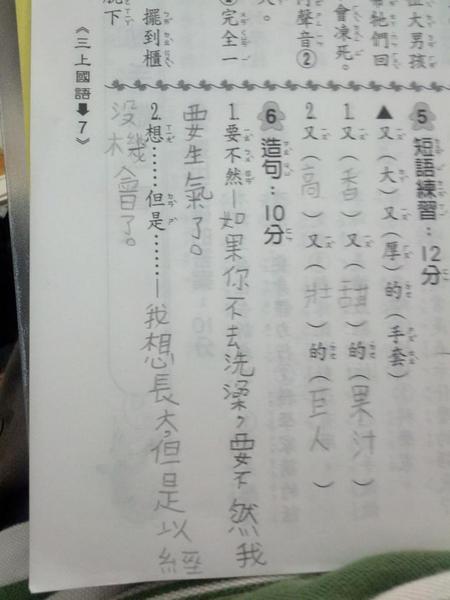 大男孩
牠們回
會凍死。
聲音②
完全一
擺到櫃
下
5 短語練習：12分
▲又（大）又（厚）的（手套）
1. 又（香）又（甜）的（果汁）
2. 又（高）又（壯）的（巨人）
6 造句：10分
1. 要不然—如果你不去洗澡，要不然我
要生氣了。
2. 想……但是……—我想長大，但是以經
沒機會了。
《三上國語⬇7》